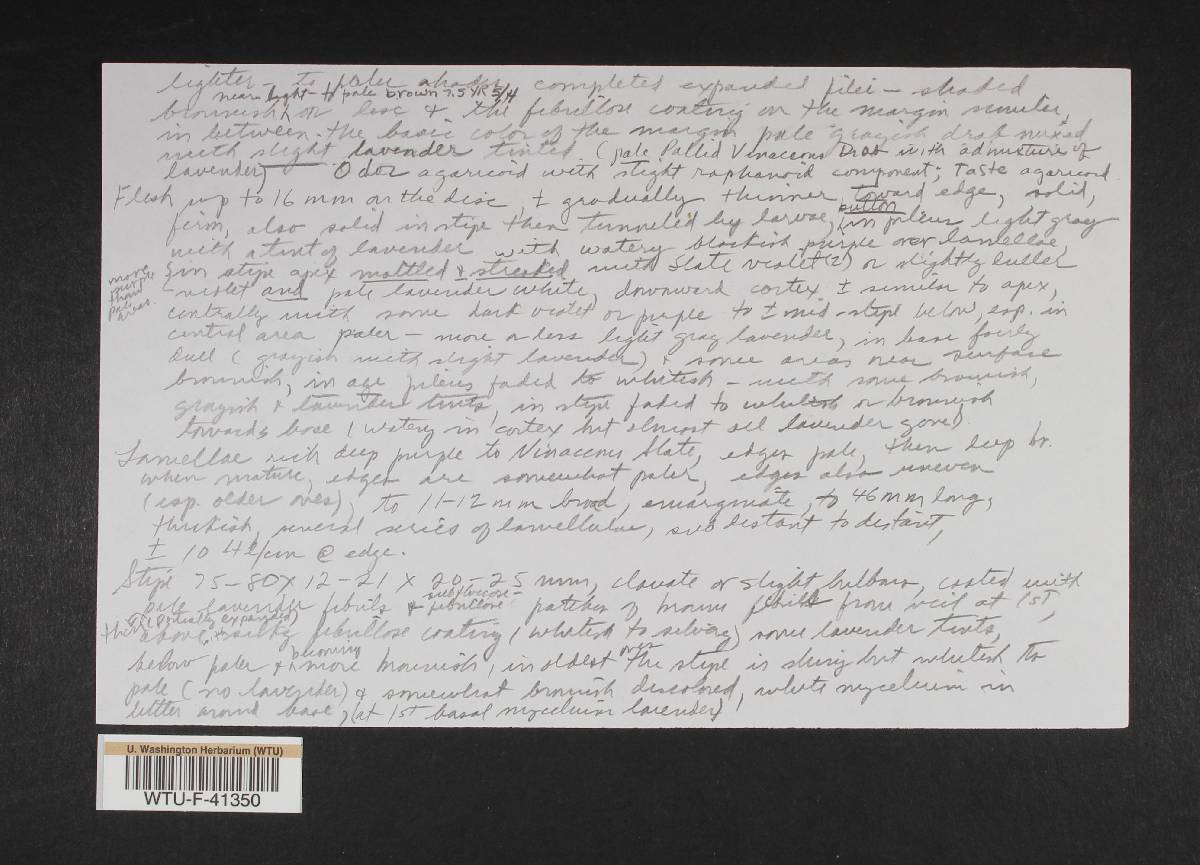 lighter - to paler shades completed expanded pilei - shaded
near light - to pale brown 7.5 YR 5/4
brownish on disc & the fibrillose coating on the margin similar,
in between the basic color of the margin pale grayish drab mixed
with slight lavender tinted (pale Pallid Vinaceous Drab with admixture of
lavender) Odor agaricoid with slight raphanoid component; Taste agaricoid
Flesh up to 16 mm on the disc, ± gradually thinner toward edge, solid,
firm, also solid in stipe then tunneled by larvae, button in pileus light gray
with a tint of lavender with watery blackish purple over lamellae,
in stipe apex mottled & streaked with Slate violet (2) or slightly duller
more purple than pale areas.
violet and pale lavender white, downward cortex ± similar to apex,
centrally with some dark violet or purple to ± mid-stipe below, esp. in
central area paler - more or less light gray lavender, in base fairly
dull (grayish with slight lavender) & some areas near surface
brownish, in age pileus faded to whitish - with some brownish,
grayish & lavender tints, in stipe faded to whitish or brownish
towards base (watery in cortex but almost all lavender gone)
Lamellae rich deep purple to Vinaceous Slate, edges pale, then deep br.
when mature, edges are somewhat paler, edges also uneven
(esp. older ones), to 11-12 mm broad, emarginate, to 46 mm long,
thickish, several series of lamellulae, subdistant to distant,
± 10 /cm @ edge.
Stipe 75-80 x 12-21 x 20-25 mm, clavate or slight bulbous, coated with
pale lavender fibrils & subfloccose-fibrillose patches of brown fibrils from veil at 1st,
then (partially expanded)
above, ± silky fibrillose coating (whitish to silvery) some lavender tints,
below paler & becoming more brownish, in oldest ones the stipe is shiny but whitish to
pale (no lavender) & somewhat brownish discolored, white mycelium in
litter around base, (at 1st basal mycelium lavender)
U. Washington Herbarium (WTU)
WTU-F-41350